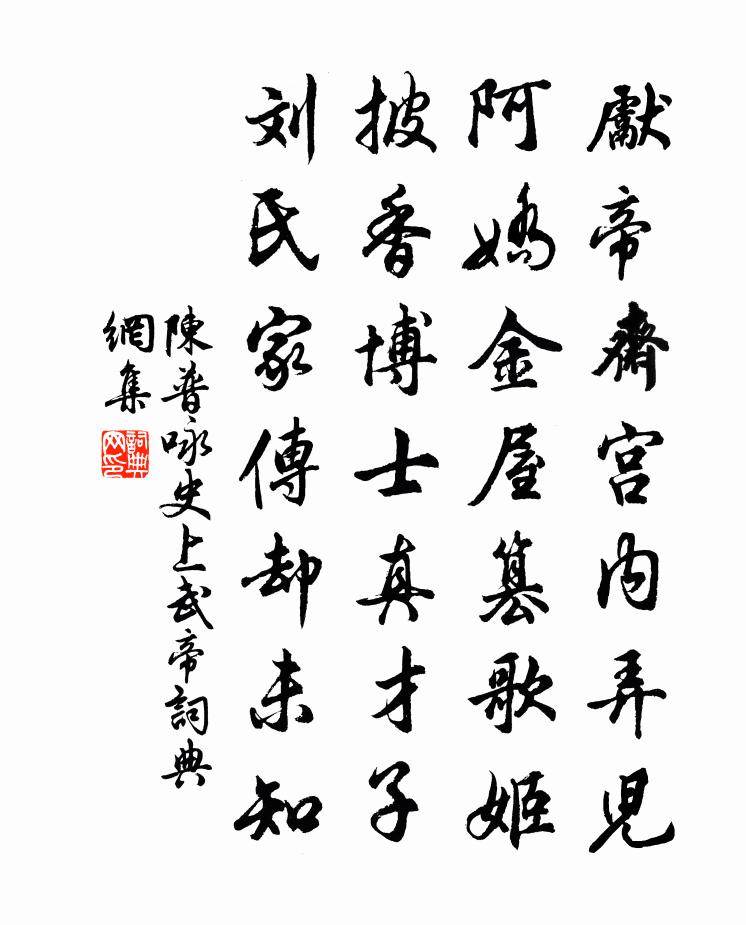 獻帝齊宮内弄児
阿嬌金屋篡歌姬
披香博士真才子
刘氏家傳却未知
陳普咏史上武帝詞典
網集
詞典
网印